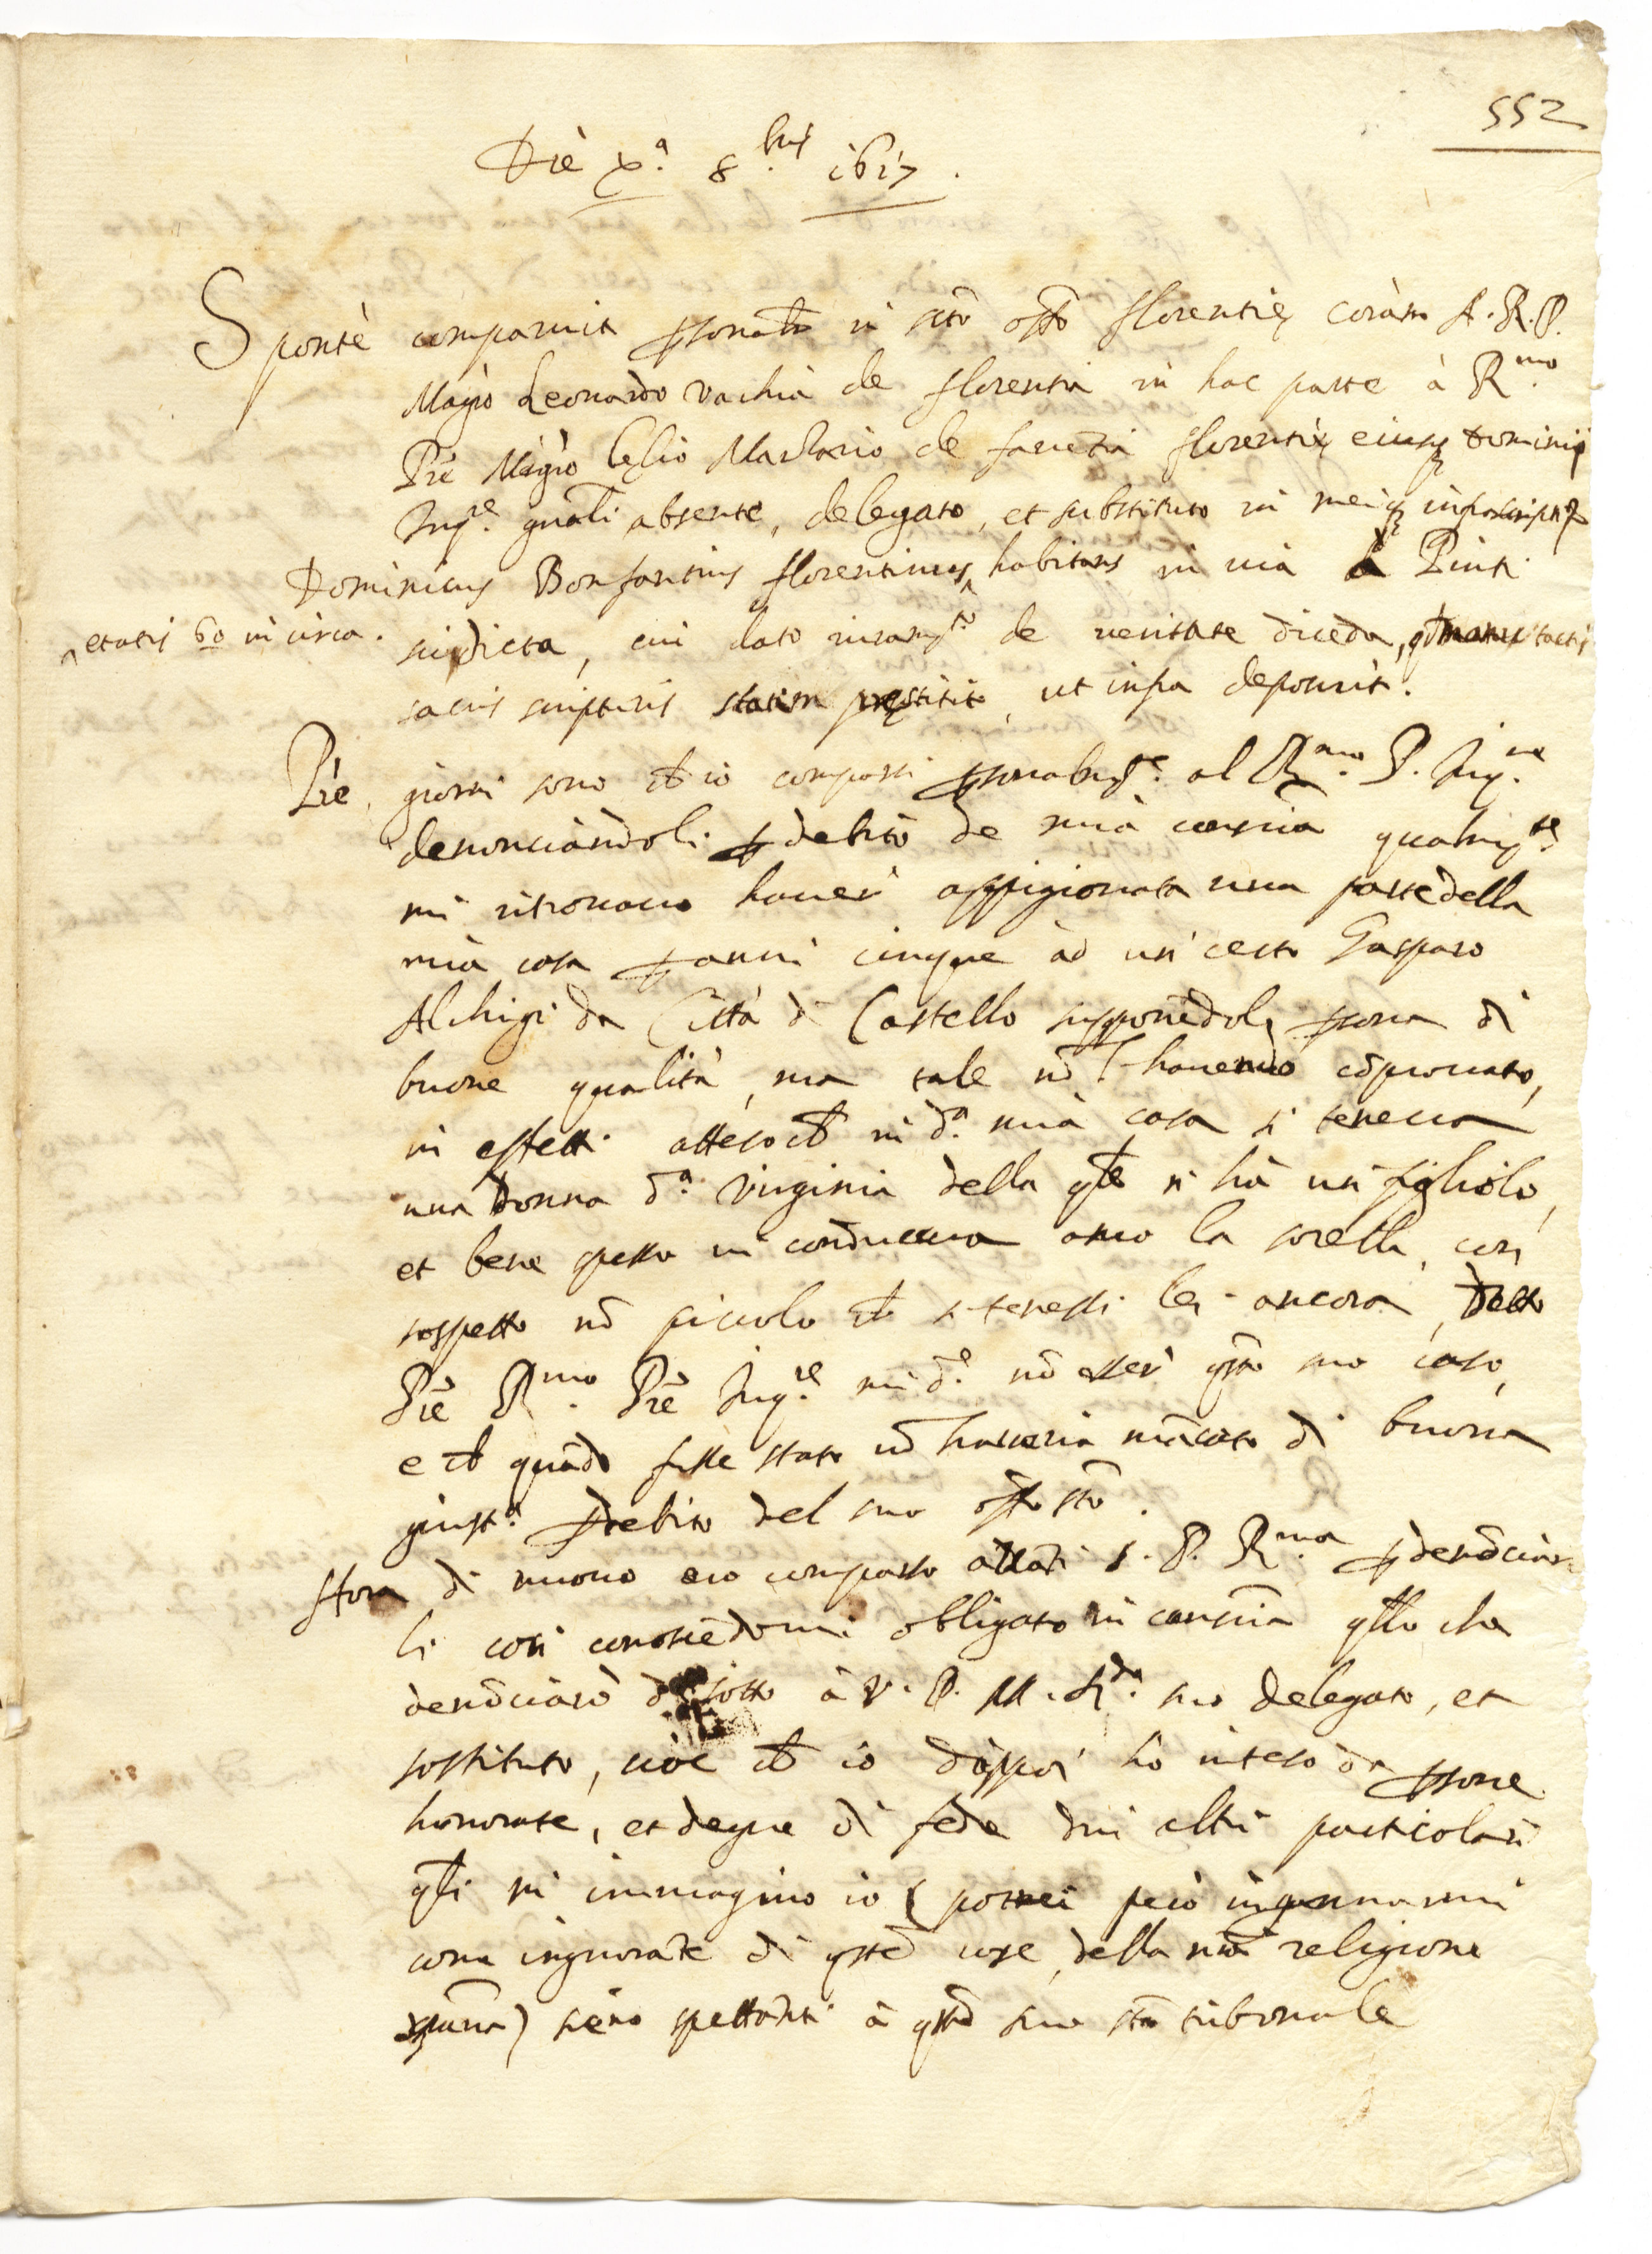 552
Die xª 8.bris 1617.
Sponte comparuit personaliter in sto offo florentię coram A. R. P.
Magro Leonardo vachia de florentia in hac parte à Rmo
Pre Magro Lelio Marzario de faventia florentię eiusq dominij
Inqre gnali absente, delegato, et substituto in meiq infrascripti
Dominicus Bonfantinus florentinus ^ habitans in via Pinti
^ etatis 60 in circa.
sudicta, cui dato iuramto de veritate diceda, tactis
sacris scripturis statim prestitit, ut infra deposuit.
Pre, giorni sono ch io comparsi psonalmte al Rmo P. Inqre
denonciandoli p debito de mia conscia qualmte
mi ritrovavo haver appigionata una parte della
mia casa p anni cinque ad un certo Gasparo
Alchigi da Città di Castello supponedolo psona di
buone qualità, ma tale nō l'havendo cōprovato,
in effetti atteso ch in dª mia casa si teneva
una donna dª Virginia della qle n' hà un figliolo,
et bene spesso vi conduceva anco la sorella, con
sospetto nō piccolo ch si tenessi lei ancora, detto
Pre Rmo Pre Inqre mi de nō esser qsto suo caso,
e ch quādo fusse stato nō haveria mācato di buona
giustª p debito del suo offo sto.
Hora di nuovo ero comparso avāti S. P. Rma p denōciar
li cosi conoscēdomi obligato in conscia qllo che
denōciarò di sotto à V. P. M. Rda suo delegato, et
sostituto, cioè ch io doppoi hò inteso da psone
honorate, et degne di fede dui altri particolari
qli mi immagino io (potrei però ingannarmi
come ingnorāte di qste cose, della nra religione
xpiana) sieno spettanti à qsto suo sto tribunale